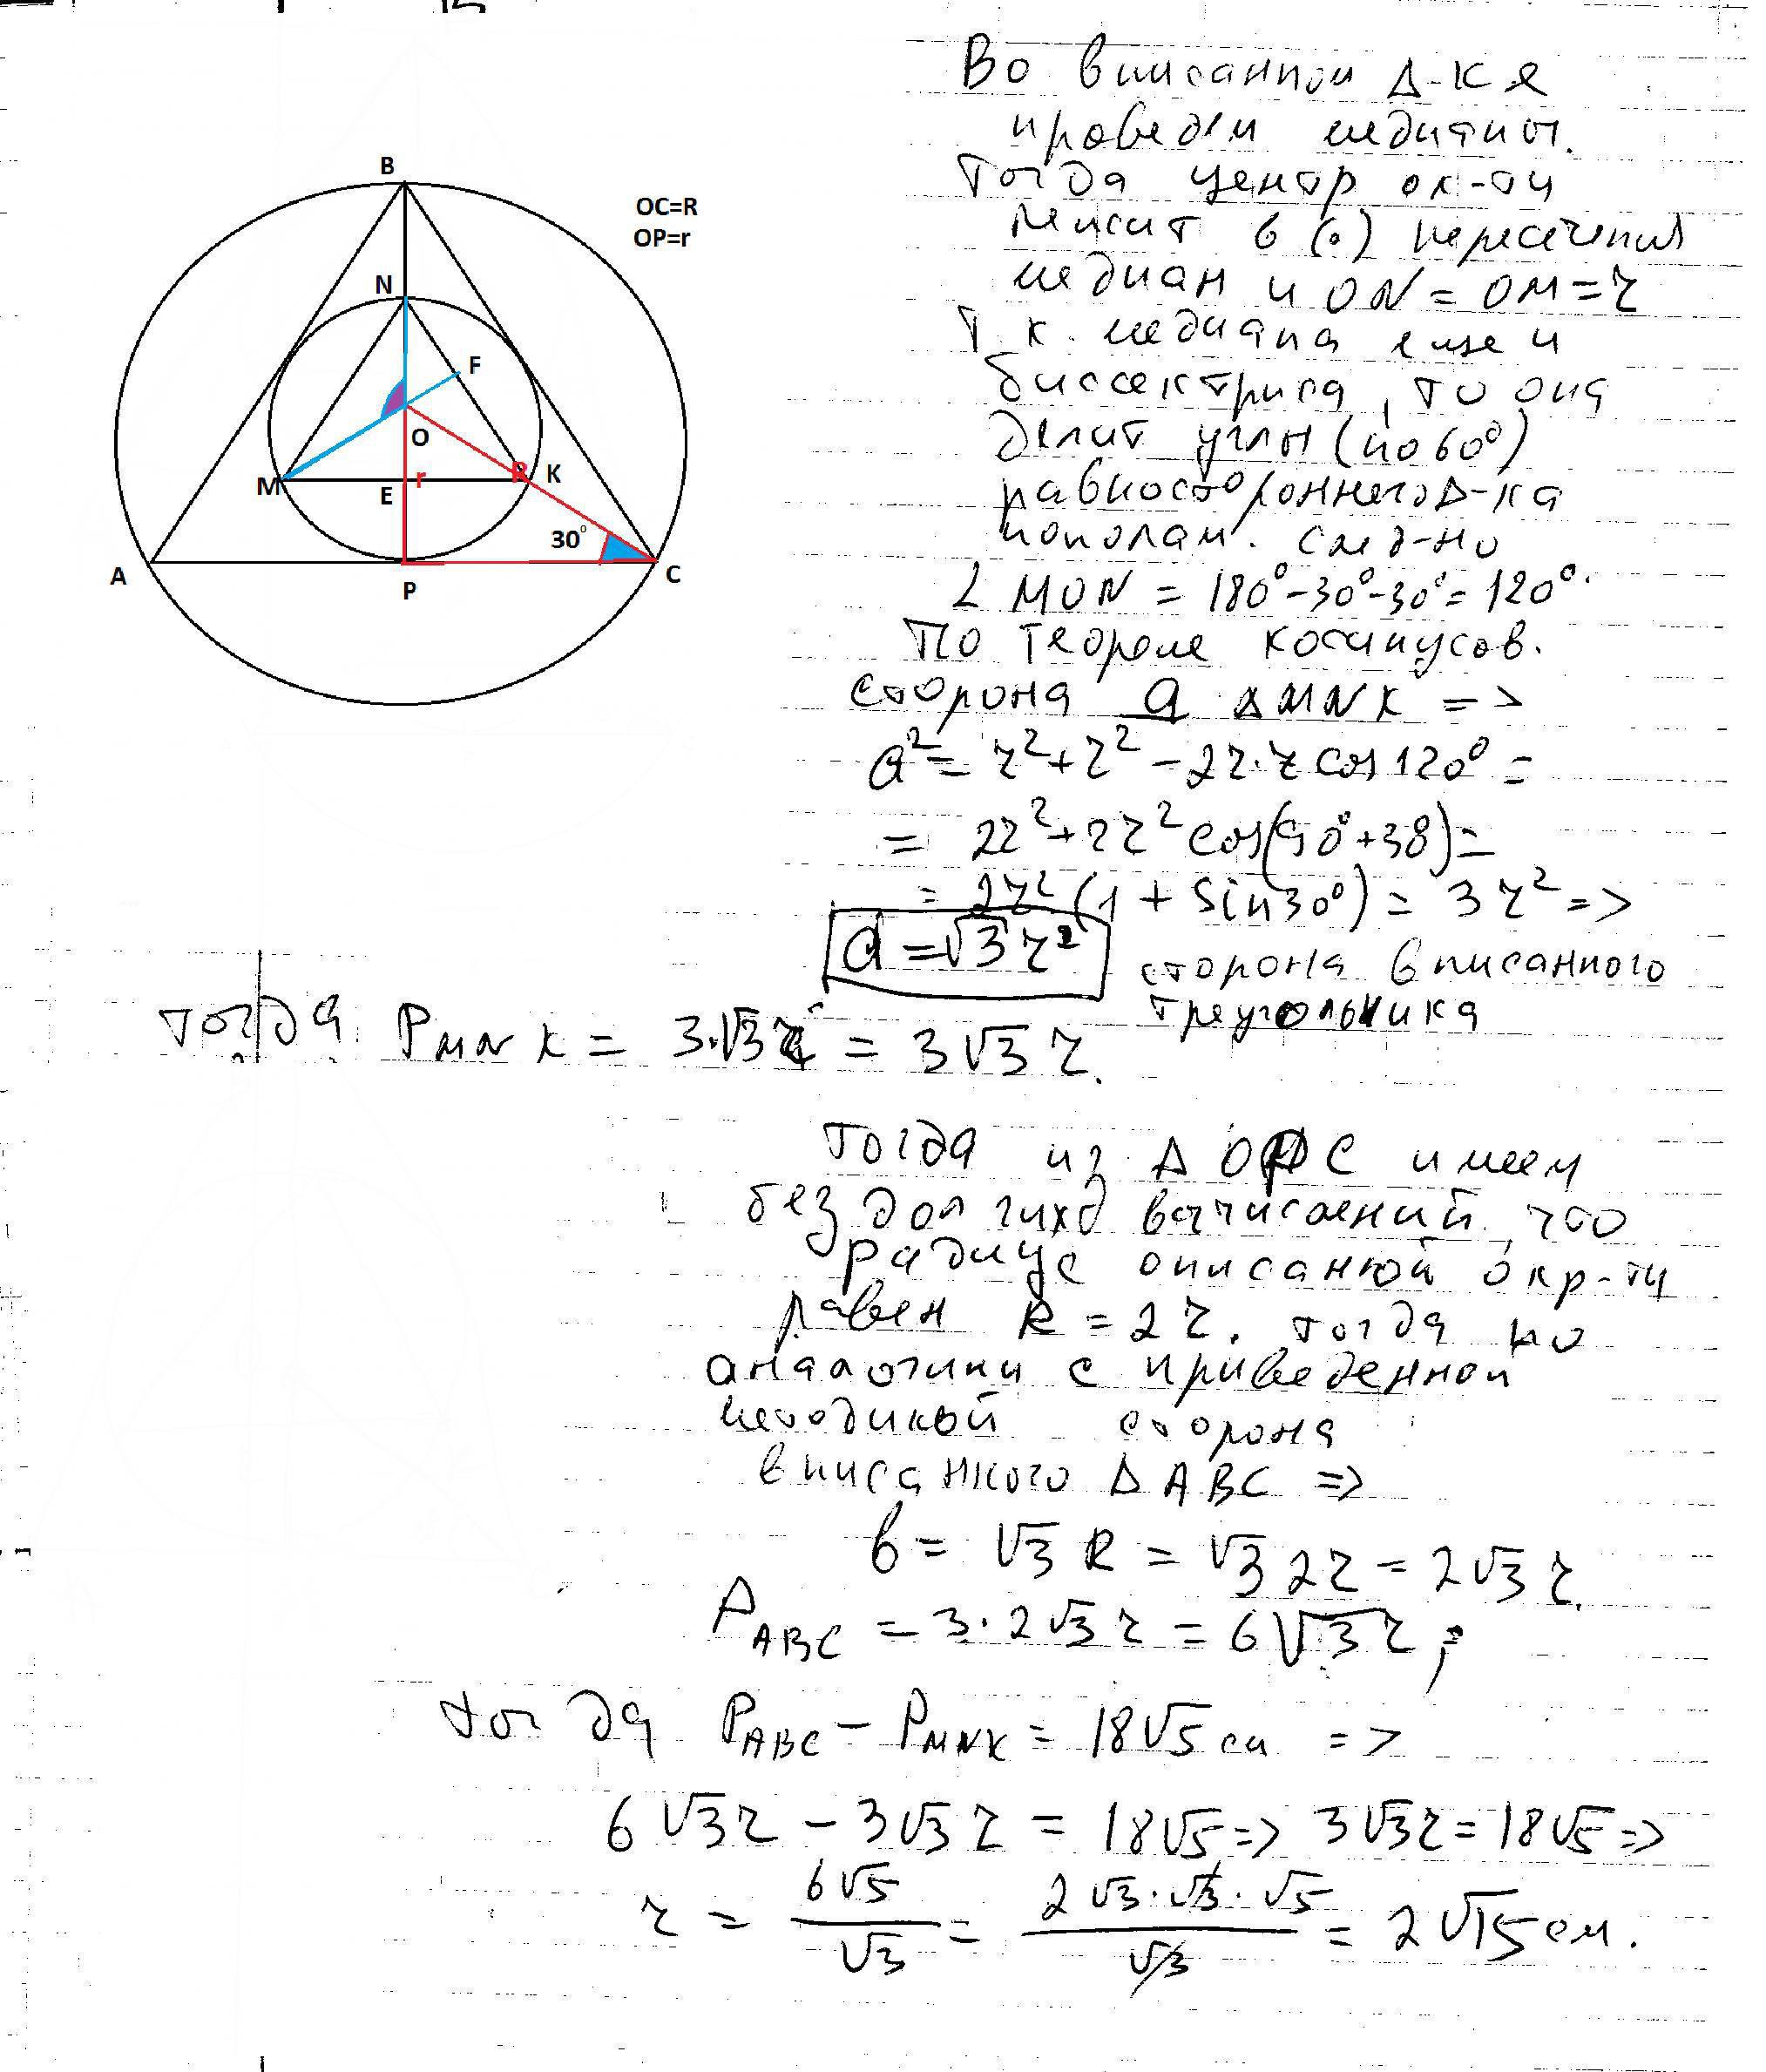 B
OC=R
OP=r
N
F
O
M
E
r
R
K
30°
A
P
C
Во вписанном Δ-ке
проведем медианы.
Тогда центр ок-ти
лежит в (•) пересечения
медиан и ON = OM = r
Т.к. медиана еще и
биссектриса, то она
делит углы (по 60°)
равностороннего Δ-ка
пополам. След-но
∠ MON = 180° - 30° - 30° = 120°.
По теореме косинусов.
сторона a ΔMNK =>
a² = r² + r² - 2r·r cos120° =
= 2r² + 2r² cos(90° + 30) =
= 2r² (1 + sin30°) = 3r² =>
a = √3 r
сторона вписанного
треугольника
Тогда P MNK = 3·√3 r = 3√3 r.
Тогда из Δ OPC имеем
без долгих вычислений, что
радиус описанной окр-ти
равен R = 2r. Тогда по
аналогии с приведенной
методикой сторона
вписанного Δ ABC =>
b = √3 R = √3 2r = 2√3 r.
P ABC = 3·2√3 r = 6√3 r;
тогда P ABC - P MNK = 18√5 см =>
6√3 r - 3√3 r = 18√5 => 3√3 r = 18√5 =>
r = 6√5/√3 = 2√3·√3·√5/√3 = 2√15 см.